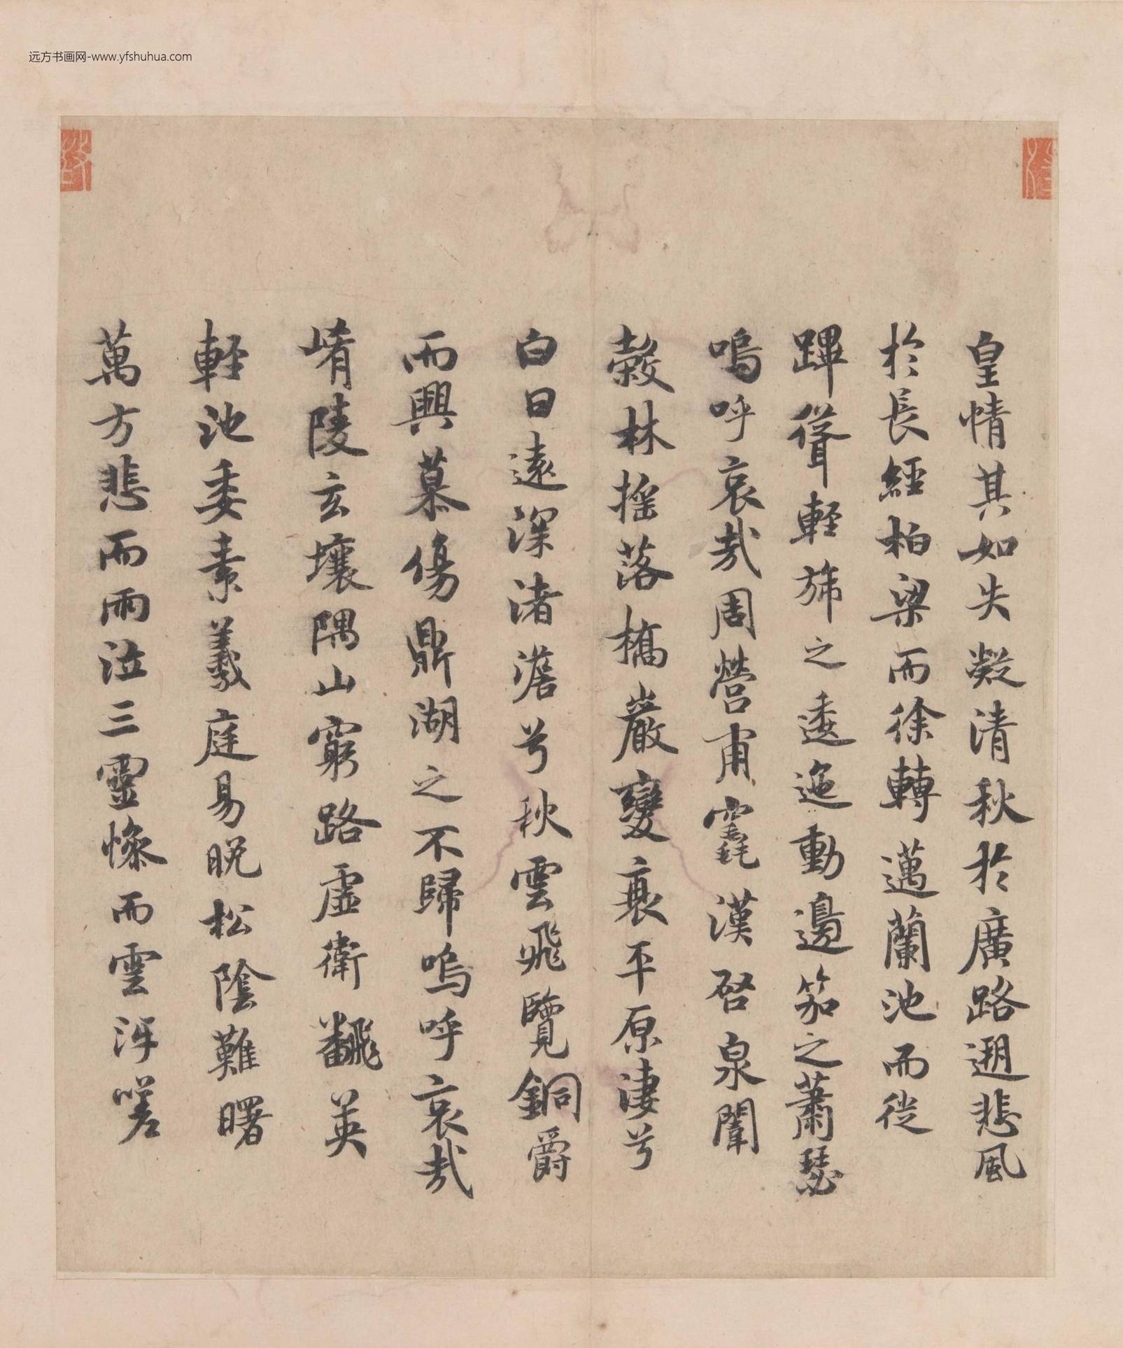 远方书画网-www.yfshuhua.com
皇情其如失凝清秋於廣路遡悲風
於長經柏梁而徐轉邁蘭池而從
蹕聳輕旆之逶迤動邊笳之蕭瑟
嗚呼哀哉周營甫竁漢啓泉闈
穀林摇落橋巖變衰平原淒兮
白日遠深渚澹兮秋雲飛覽銅爵
而興慕傷鼎湖之不歸嗚呼哀哉
崤陵玄壤隅山窮路虛衛飜英
輕池委素羲庭易晩松陰難曙
萬方悲而雨泣三靈慘而雲沍嗟